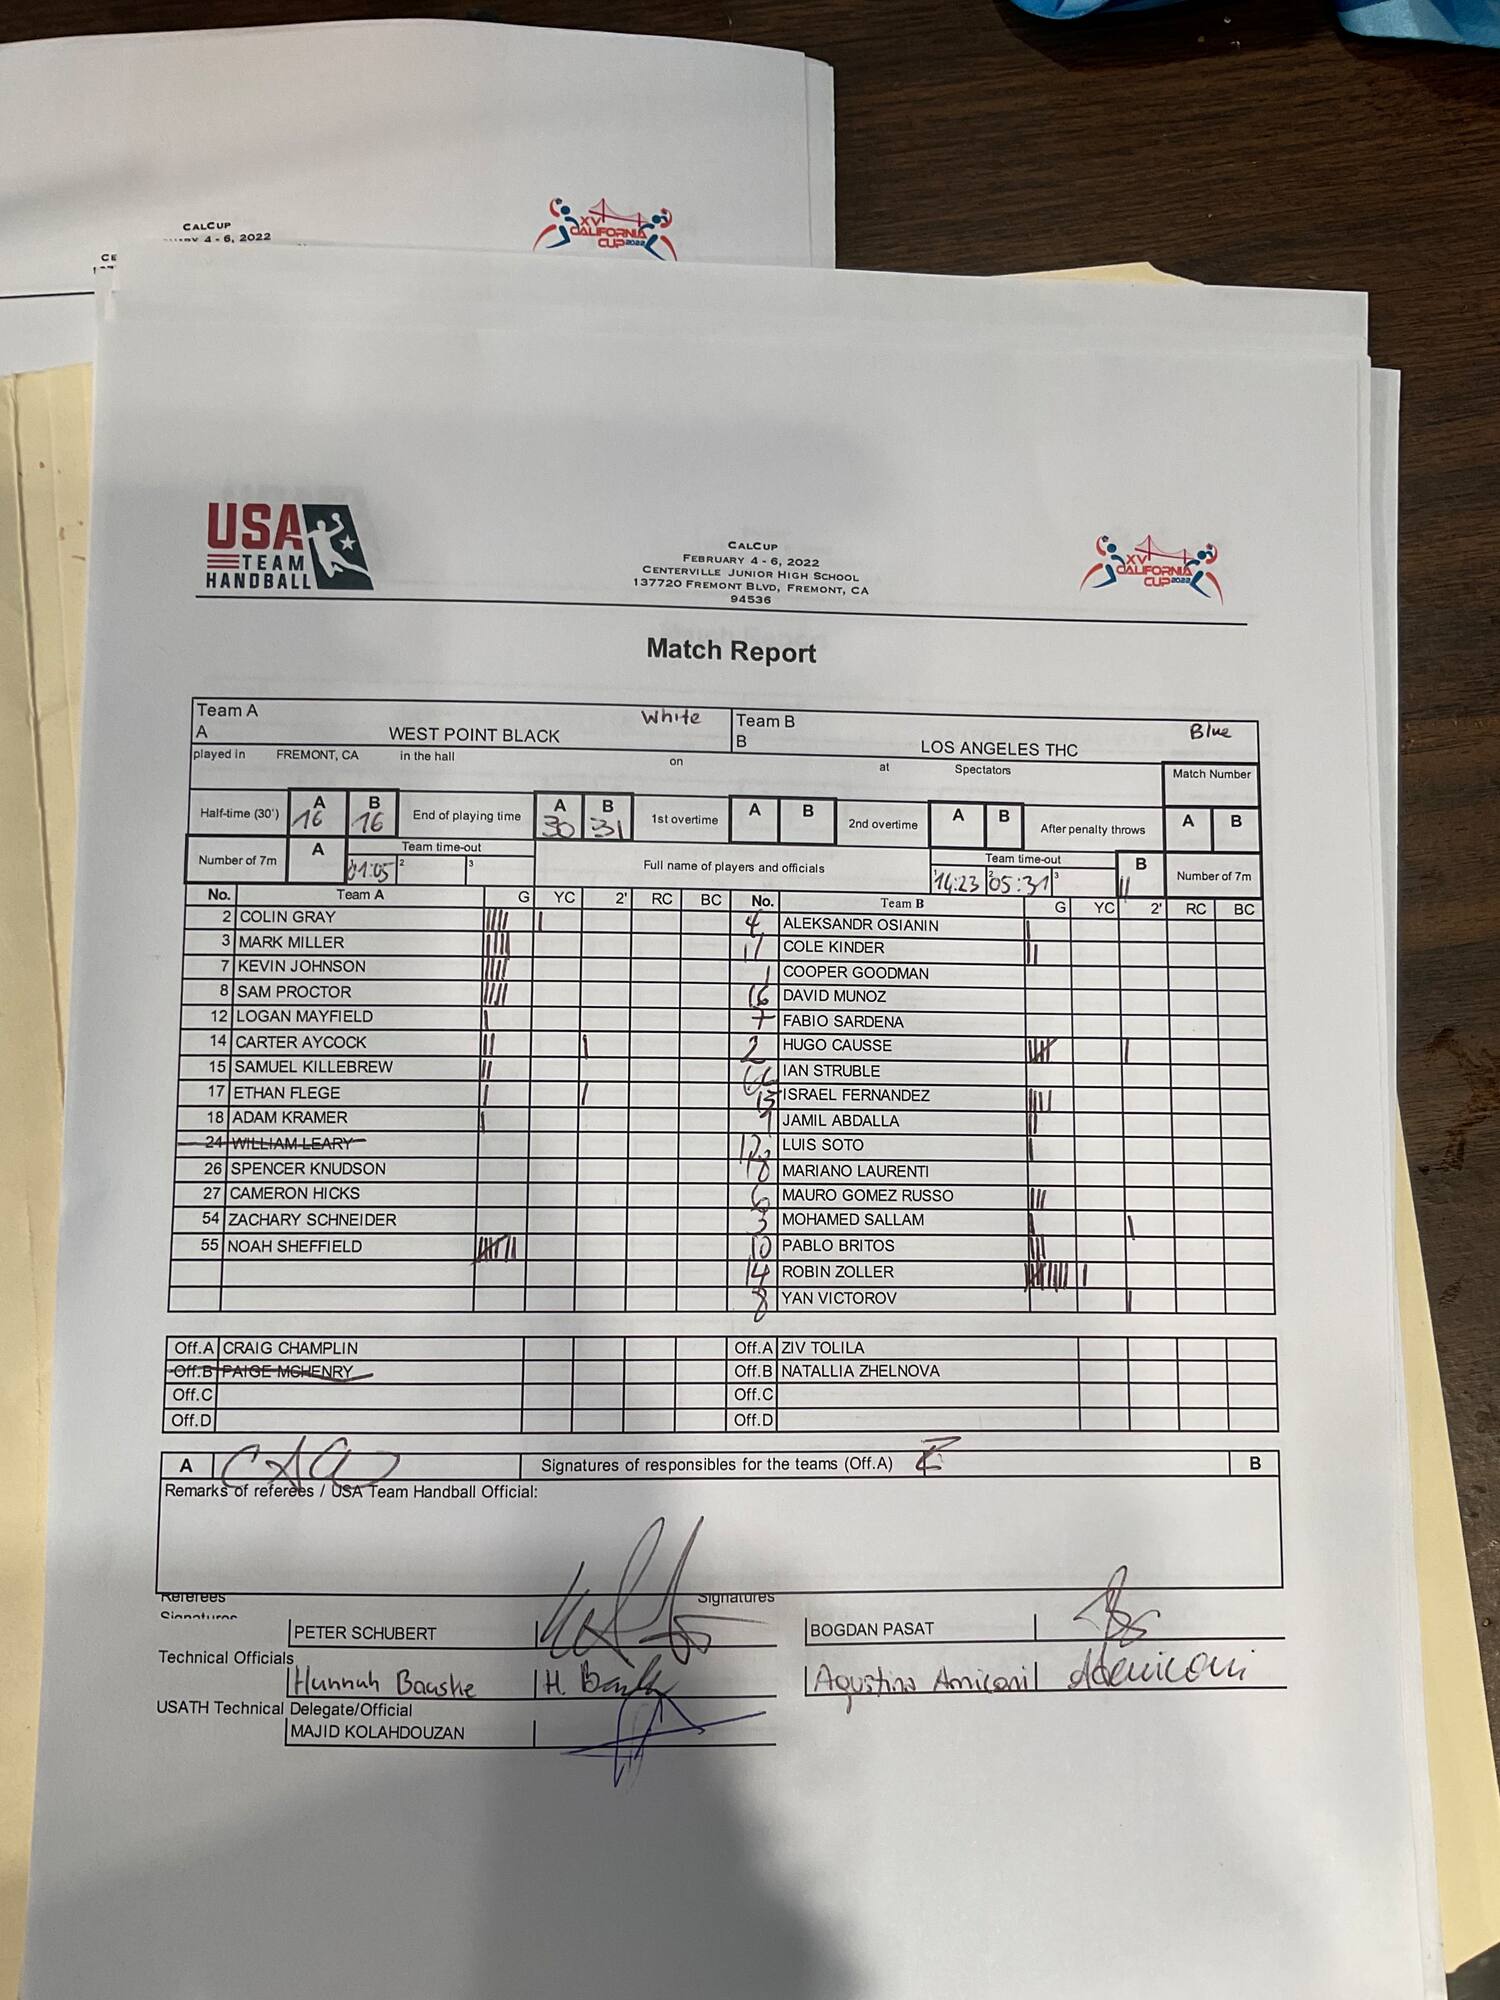 CALCUP
4 - 6, 2022
XV
CALIFORNIA
CUP 2022
CE
USA
TEAM
HANDBALL
CALCUP
FEBRUARY 4 - 6, 2022
CENTERVILLE JUNIOR HIGH SCHOOL
137720 FREMONT BLVD, FREMONT, CA
94536
XV
CALIFORNIA
CUP 2022
Match Report
Team A White Team B Blue
A WEST POINT BLACK B LOS ANGELES THC
played in FREMONT, CA in the hall on at Spectators Match Number
Half-time (30') A 16 B 16 End of playing time A 30 B 31 1st overtime A B 2nd overtime A B After penalty throws A B
Number of 7m A Team time-out 01:05 2 3 Full name of players and officials Team time-out 1 14:23 2 05:31 3 B || Number of 7m
No. Team A G YC 2' RC BC No. Team B G YC 2' RC BC
2 COLIN GRAY 4 ALEKSANDR OSIANIN
3 MARK MILLER 11 COLE KINDER
7 KEVIN JOHNSON 1 COOPER GOODMAN
8 SAM PROCTOR 16 DAVID MUNOZ
12 LOGAN MAYFIELD 7 FABIO SARDENA
14 CARTER AYCOCK 2 HUGO CAUSSE
15 SAMUEL KILLEBREW IAN STRUBLE
17 ETHAN FLEGE 15 ISRAEL FERNANDEZ
18 ADAM KRAMER JAMIL ABDALLA
24 WILLIAM LEARY LUIS SOTO
26 SPENCER KNUDSON 18 MARIANO LAURENTI
27 CAMERON HICKS 6 MAURO GOMEZ RUSSO
54 ZACHARY SCHNEIDER 3 MOHAMED SALLAM
55 NOAH SHEFFIELD 10 PABLO BRITOS
14 ROBIN ZOLLER
8 YAN VICTOROV
Off.A CRAIG CHAMPLIN Off.A ZIV TOLILA
Off.B PAIGE MCHENRY Off.B NATALLIA ZHELNOVA
Off.C Off.C
Off.D Off.D
A Signatures of responsibles for the teams (Off.A) B
Remarks of referees / USA Team Handball Official:
Referees Signatures
Signatures
PETER SCHUBERT BOGDAN PASAT
Technical Officials
Hannah Bauske H. Agustina Amiconi
USATH Technical Delegate/Official
MAJID KOLAHDOUZAN